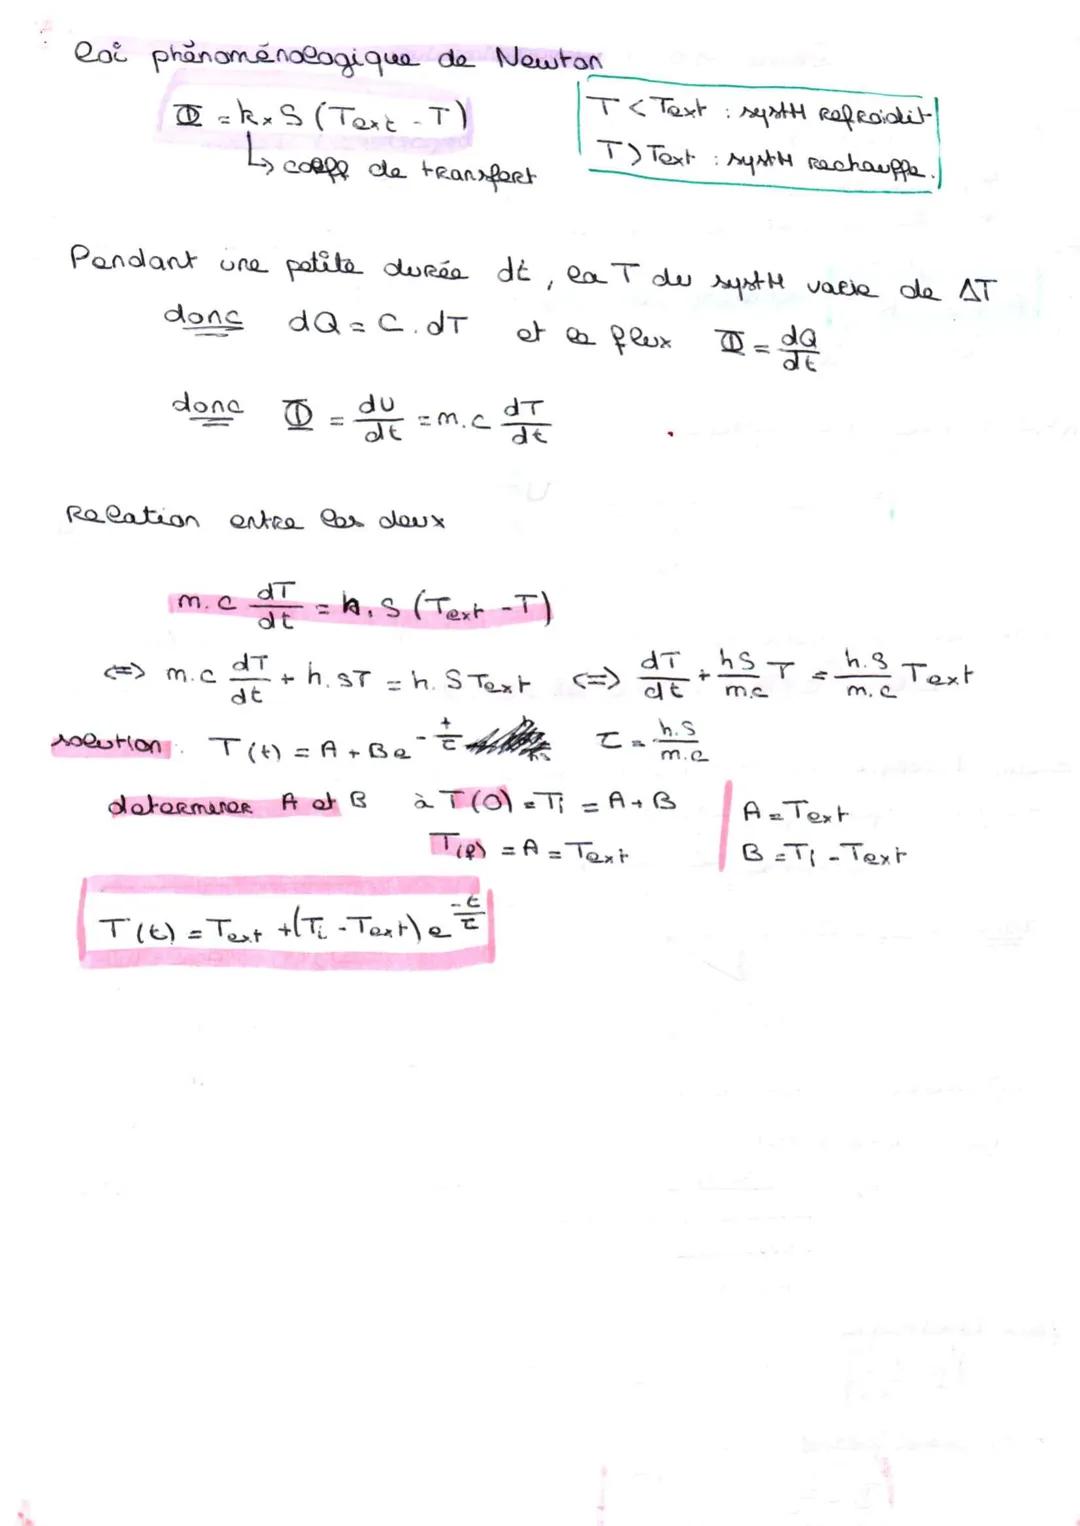 Loi phénoménologique de Newton
Φ = k × S (Text - T)
↳ coeff de transfert
T < Text : systH refroidit
T > Text : systH rechauffe.
Pendant une petite durée dt, la T du systH varie de ΔT
donc dQ = C. dT et le flux Φ = dQ/dt
donc Φ = dU/dt = m.c dT/dt
Relation entre les deux
m.c dT/dt = h.S (Text - T)
<=> m.c dT/dt + h.ST = h.S Text <=> dT/dt + hS/m.c T = h.S/m.c Text
solution : T(t) = A + Be^-t/τ τ = h.S/m.c
determiner A et B à T(0) = Ti = A + B
T(f) = A = Text
A = Text
B = Ti - Text
T(t) = Text + (Ti - Text) e^-t/τ